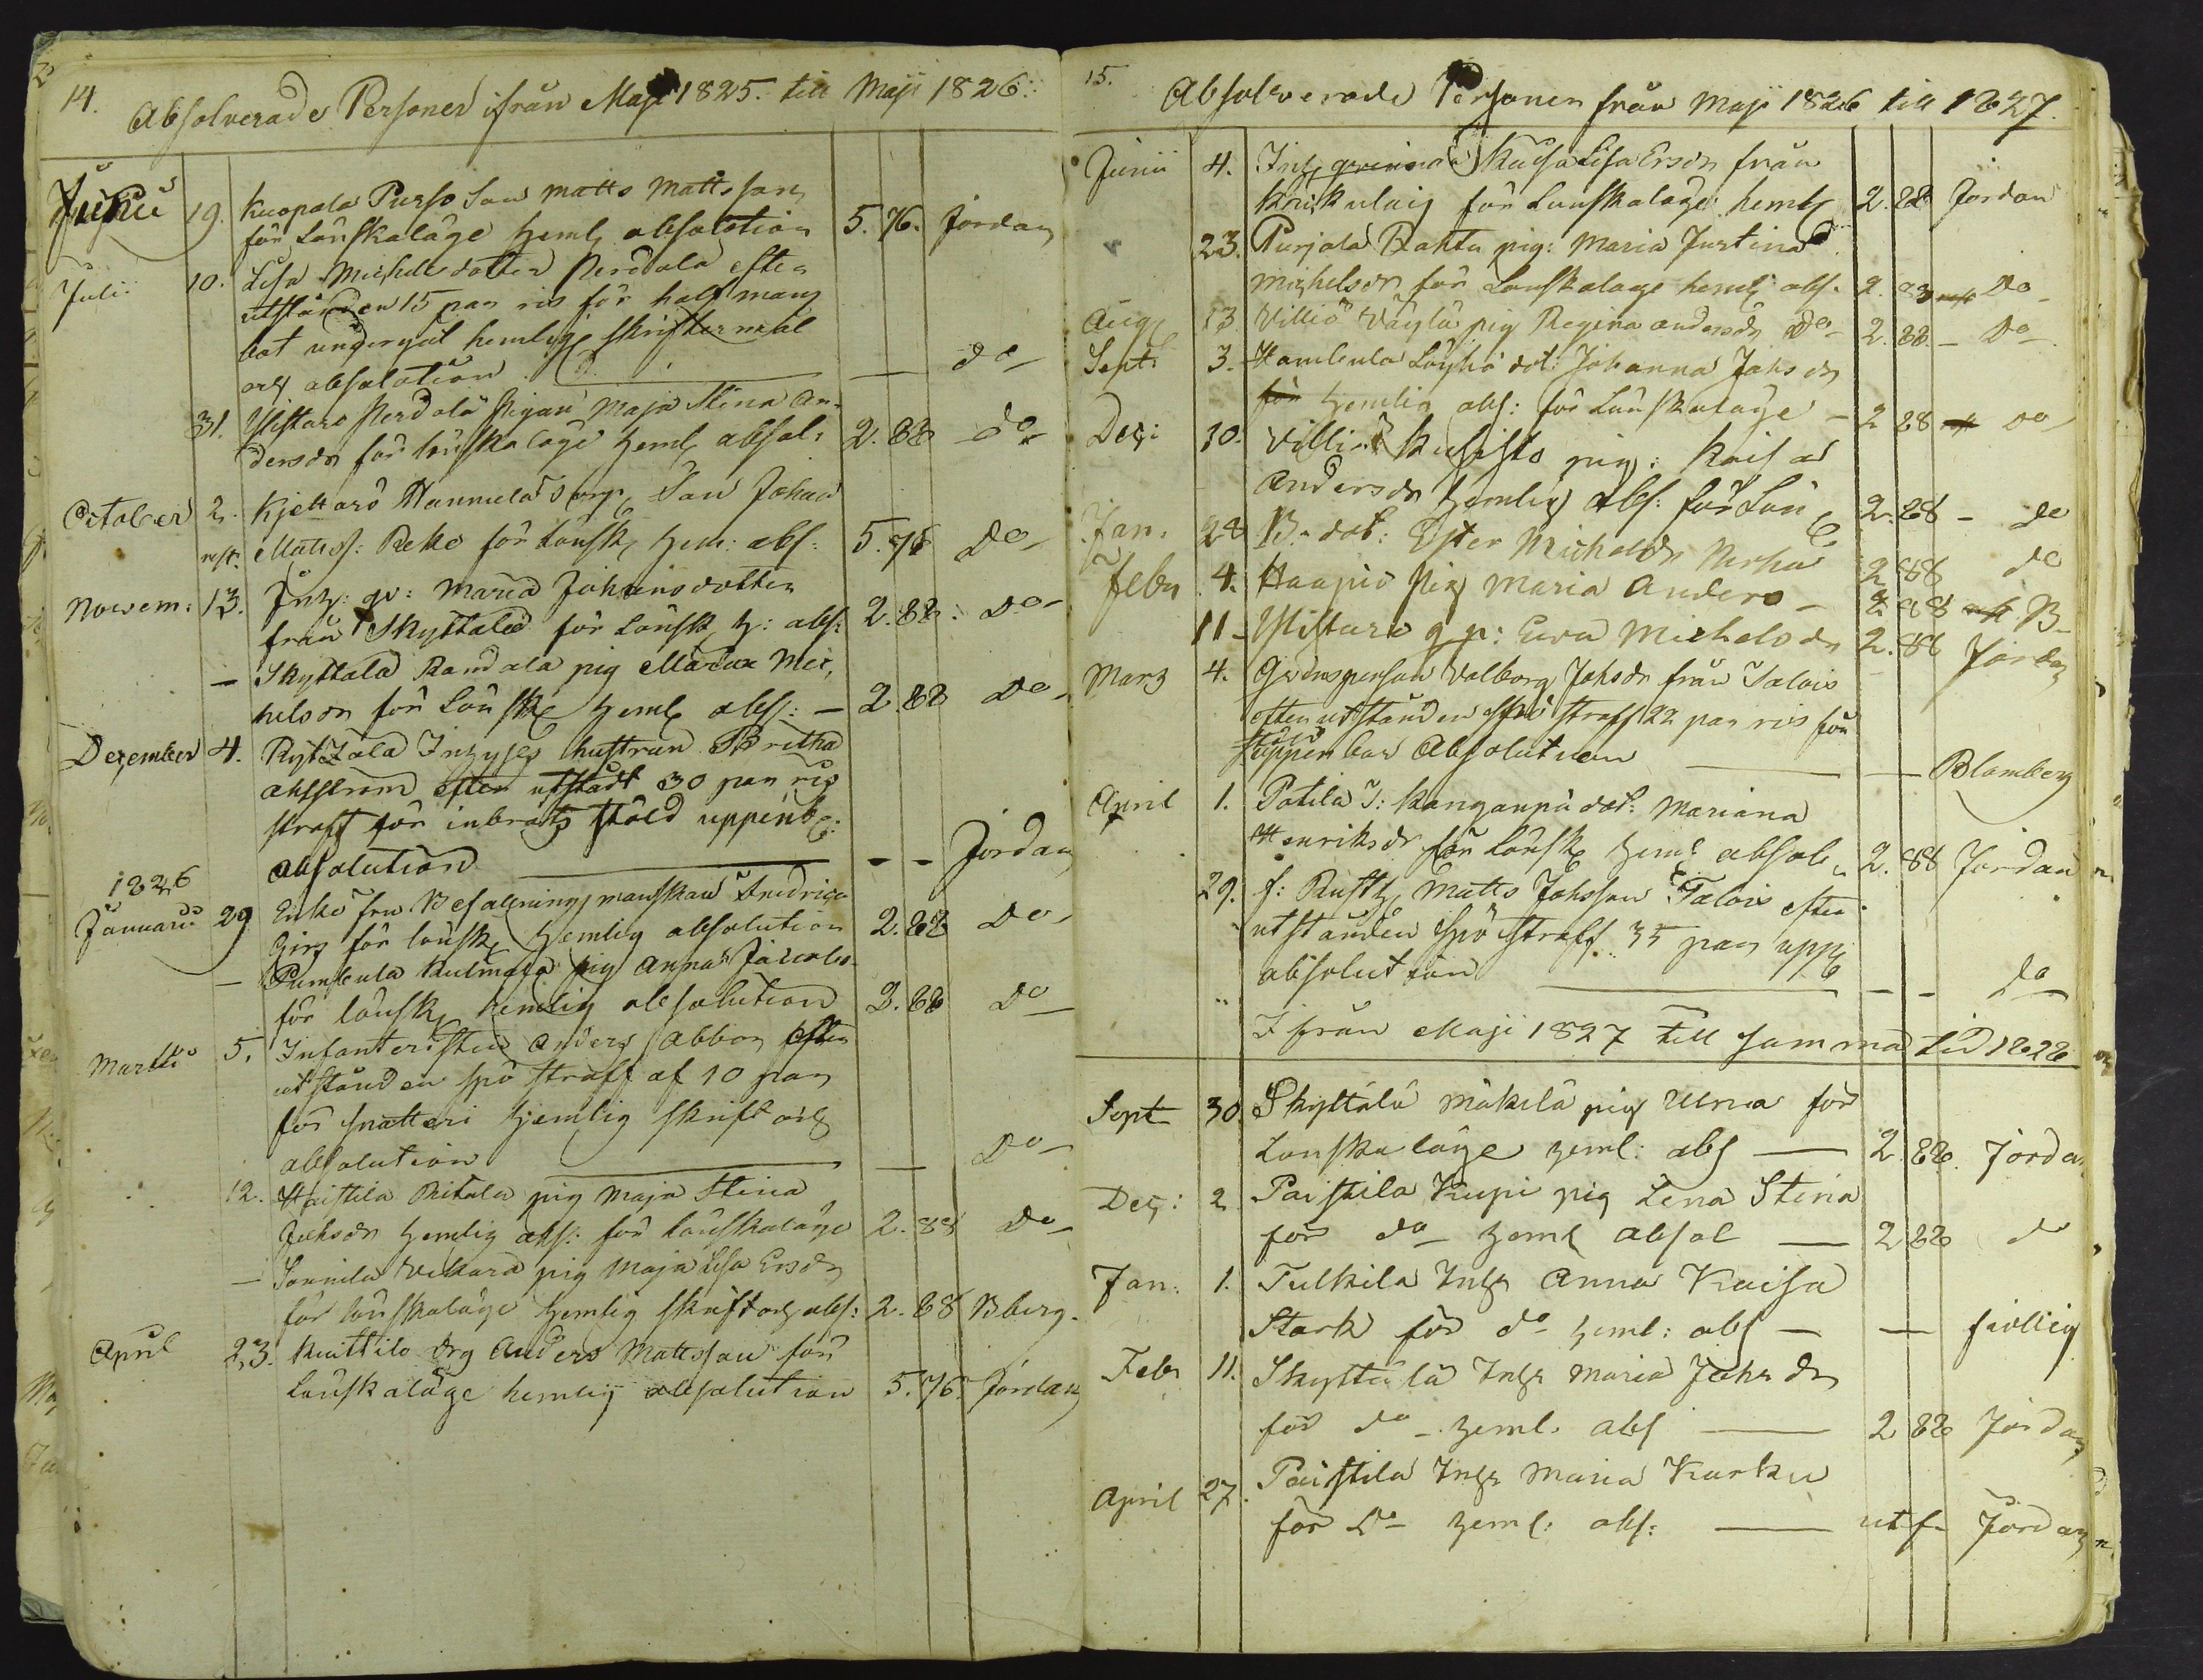 14.
Absolverade Personer ifrån Maji 1825. till Maji 1826.
Junii 19. Kuopala Purso Son Matts Mattsson
för Lönskaläge heml absolotion 5. 76. Jordan
Julii 10. Lisa Michelsdotter Perdola efter
utstånden 15 par ris för half mans
bot undergåt hemligt skriftermål
och absolotion — do
31. Ylistaro Perdola Pigan Maja Stina An-
dersdr för lönskaläge heml absol: 2. 88 do
October 2. Kjettarö Hannula Son Johan
Matts: Reko för Lönsk hem: abs: 5. 76 Do
Novem: 13. Inh: qv: Maria Johansdotter
från Skyttälä för Lönsk h: abs: 2. 88. Do
— Skyttälä Randala pig Maria Mic-
helsdr för Lönsk heml abs: — 2. 88 Do
December 4. Inhyses hustrun Britha
Ahlstrøm efter utstådt 30 par ris
straff för inbrotts stöld uppenb:
absolution — — Jordan
1826
Januarii 29 Enke fru Befallningsmanskan Fredrica
för lönsk hemlig absolution 2. 88 Do
— Pumbula Kulmala pig Anna Jacobs
för lönsk hemlig absolution 2. 88 Do
Martii 5. Infanteristen Anders Abbor efter
utstånden spö straff af 10 par
för snatteri hemlig skrift och
absolution — Do
12. Haistila Ritala pig Maja Stina
Johsdr hemlig abs: för lönskaläge 2. 88 Do
— Sonnila Vikara pig Maja Lisa Ersdr
för lönskaläge hemlig skrift och abs: 2. 88 Bberg.
April 23. Knittilo drg Anders Mattsson för
Lönskaläge hemlig absolution 5. 76. Jordan
15.
Absolverade Personer från Maji 1826 till 1827.
Junii 4. Inh qvinna Kaisa Lisa Ersdr från
för Lönskaläge heml 2. 88 Jordan
23. Purjala Rahtu pig: Maria Justina
Michelsdr för Lönskaläge heml abs. 2. 88 Do
Aug 13 Villiö Väylä pig Regina Andersdr Do 2. 88. — Do
Sept: 3. Hambula Löyhö dot: Johanna Johsdr
för hemlig abs: för Lönskaläge — 2 88 Do
Dec: 10. Villiö Kulisto pig: Kaisa
Andersdr hemlig abs: för Lön 2. 88 — do
Jan: 28 B. dot: Ester Michelsdr 2 88 do
Febr 4. Haapio pig Maria Anders — 2 88 B
11 — Ylistaro q p: Ewa Michelsdr 2. 88 Jordan
Mars 4. Qvinsperson Valborg Johsdr från Talois
efter utstånden spö straff 22 par ris för
stöld
uppenbar Absolution — — Blomberg
April 1. Potila T: Kanganpä dot: Mariana
Henriksdr för Lönsk heml absol 2. 88 Jordan
29. f: Rusth Matts Johsson Talois efter
utstånden spö straff. 35 par upp
absolution — — do
Ifrån Maji 1827 till samma tid 1828
Sept 30. Skyttälä Mäkilä pig Ulrica för
Lönskaläge heml: abs — 2. 88. Jordan
Dec: 2 Paistila Kupi pig Lena Stina
för do heml absol — 2 88 do
Jan: 1. Tulkila Inhs Anna Kaisa
Stark för do heml: abs — —
Febr 11. Skyttälä Inhs Maria Johsdr
för do heml. abs — 2 88 Jordan
April 27. Paistila Inhs Maria Kurku
för Do heml: abs: — utf Jordan